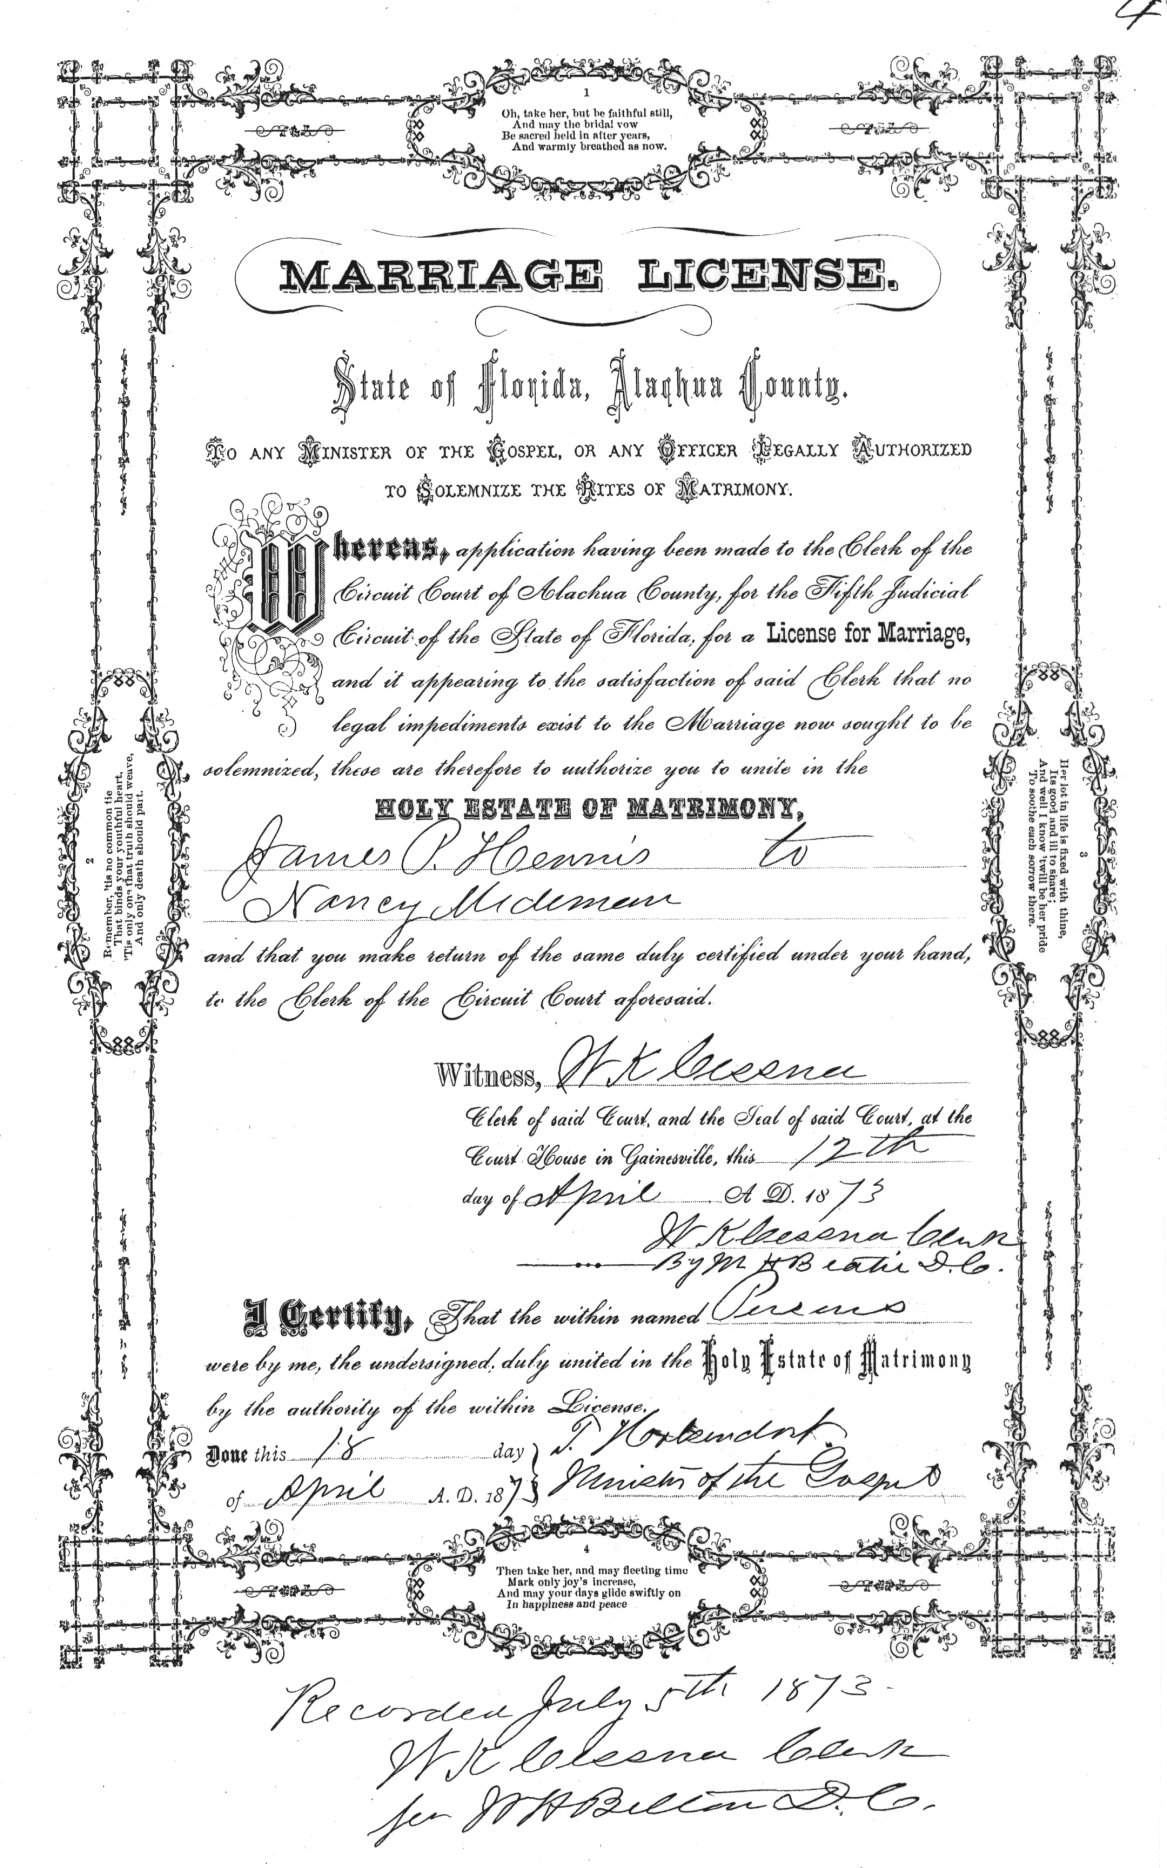 1
Oh, take her, but be faithful still,
And may the bridal vow
Be sacred held in after years,
And warmly breathed as now.
MARRIAGE LICENSE.
State of Florida, Alachua County.
TO ANY MINISTER OF THE GOSPEL, OR ANY OFFICER LEGALLY AUTHORIZED
TO SOLEMNIZE THE RITES OF MATRIMONY.
Whereas, application having been made to the Clerk of the
Circuit Court of Alachua County, for the Fifth Judicial
Circuit of the State of Florida, for a License for Marriage,
and it appearing to the satisfaction of said Clerk that no
legal impediments exist to the Marriage now sought to be
solemnized, these are therefore to authorize you to unite in the
HOLY ESTATE OF MATRIMONY,
James P. Hennis to
Nancy
and that you make return of the same duly certified under your hand,
to the Clerk of the Circuit Court aforesaid.
Witness, W K Cessna
Clerk of said Court, and the Seal of said Court, at the
Court House in Gainesville, this 12th
day of April A D. 1873
W K Cessna Clerk
By D. C.
I Certify, That the within named Persons
were by me, the undersigned, duly united in the Holy Estate of Matrimony
by the authority of the within License.
Done this 18 day
of April A. D. 1873
T.
Minister of the Gospel
2
Remember, 'tis no common tie
That binds your youthful heart,
'Tis only one that truth should weave,
And only death should part.
3
Her lot in life is fixed with thine,
Its good and ill to share;
And well I know 'twill be her pride
To soothe each sorrow there.
4
Then take her, and may fleeting time
Mark only joy's increase,
And may your days glide swiftly on
In happiness and peace
Recorded July 5th 1873.
W K Cessna Clerk
per W H Belton D. C.